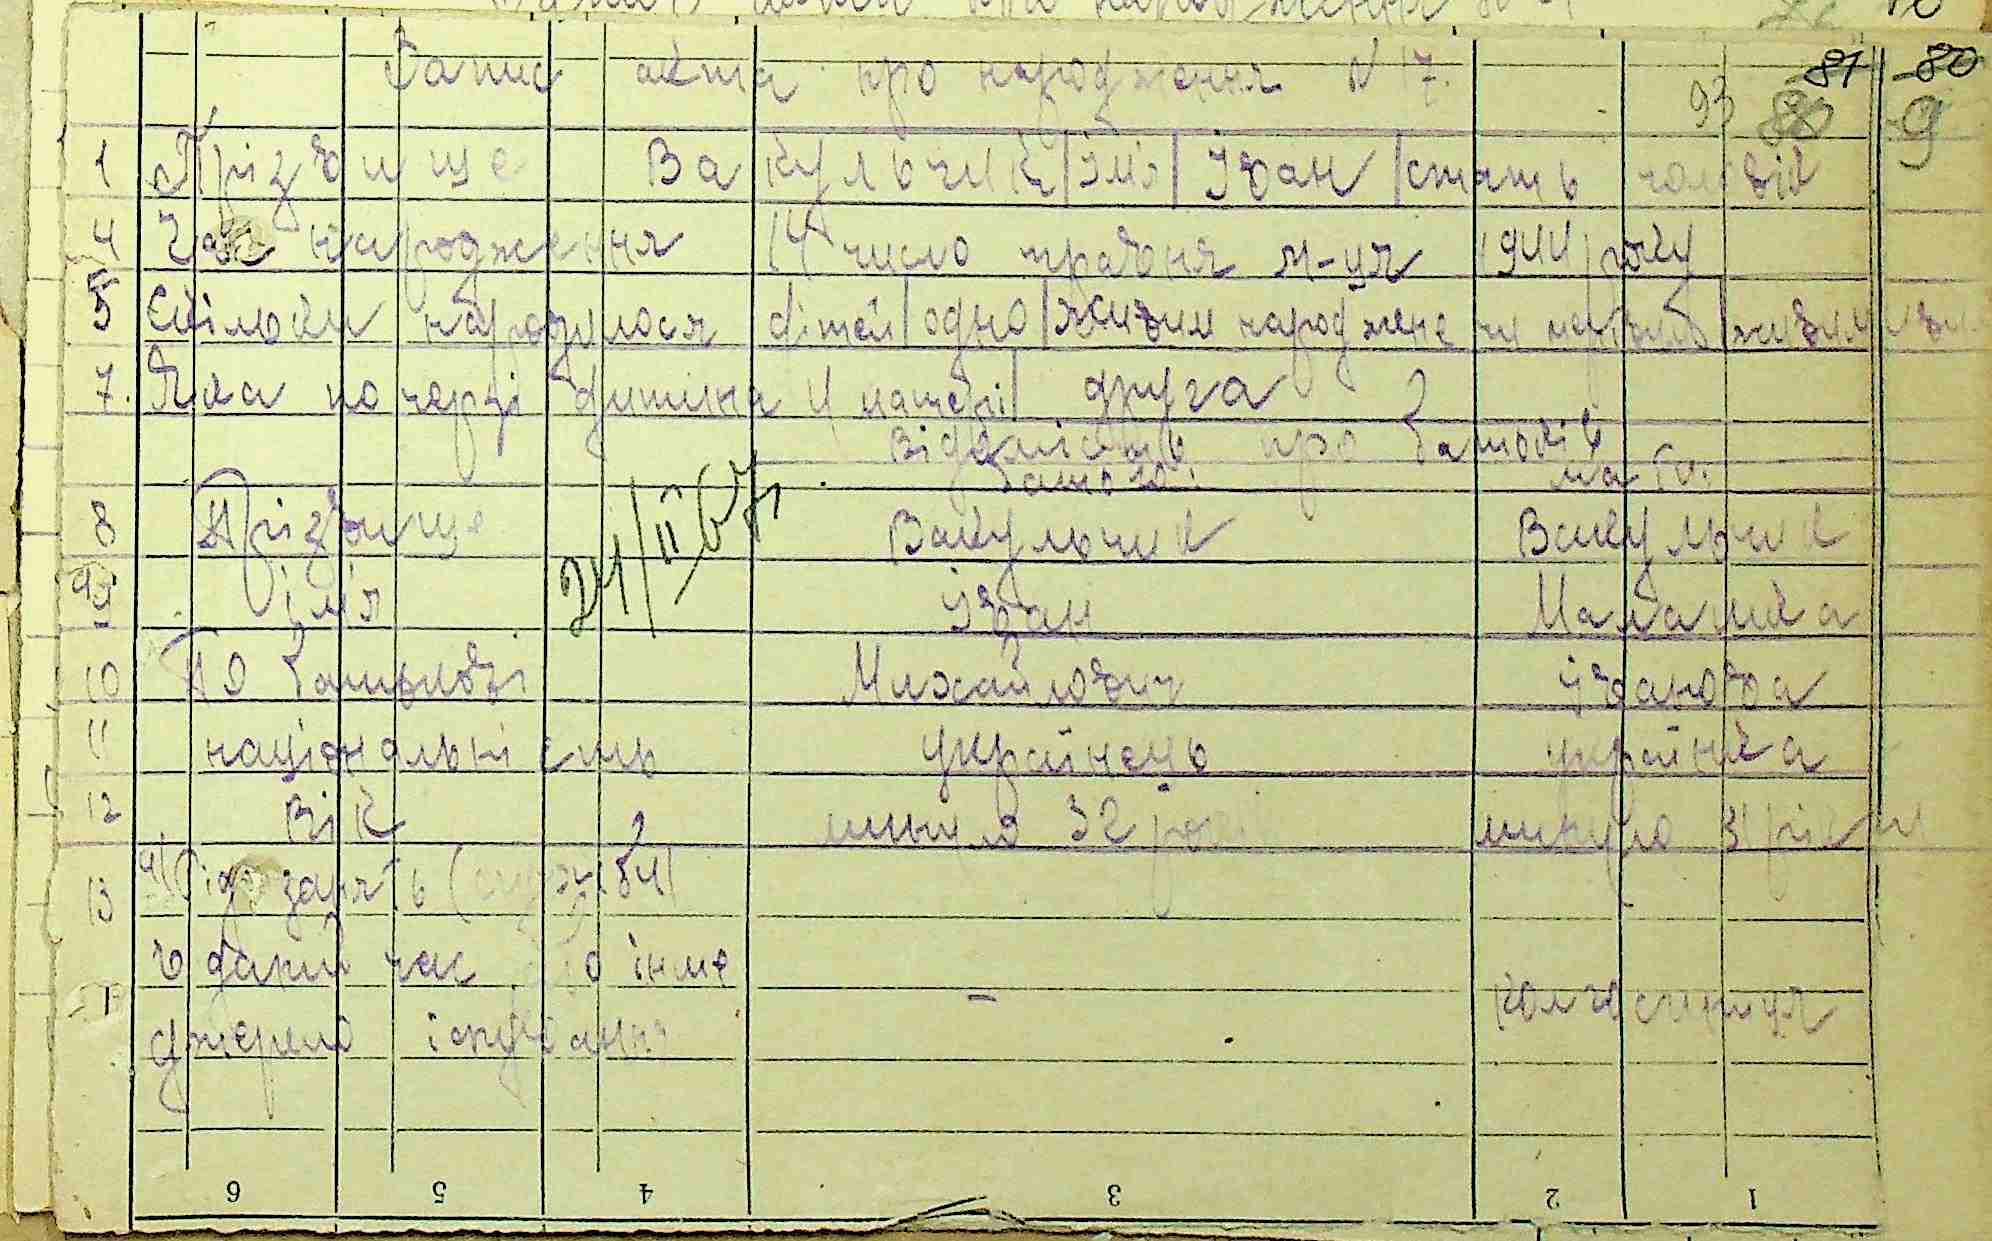 Запис акта про народження N 17.
81 80
93 9
1 Прізвище Вакульчик імя Іван стать чоловік
4 Час народження 14 число травня м-ця 1944 року
5 Скільки народилося дітей одно живим народжене чи мертвим живим
7. Яка по черзі дитина у матері друга
відомість про батьків
батько: мати:
8 Прізвище Вакульчик Вакульчик
9 імя Іван Маланка
24/II 67
10 По батькові Михайлович Іванова
11 національність українець українка
12 вік минуло 32 минуло 31 рік
13 а) Рід занять (служби)
в даний час або інше
джерело існування – колгоспниця
6 5 4 3 2 1